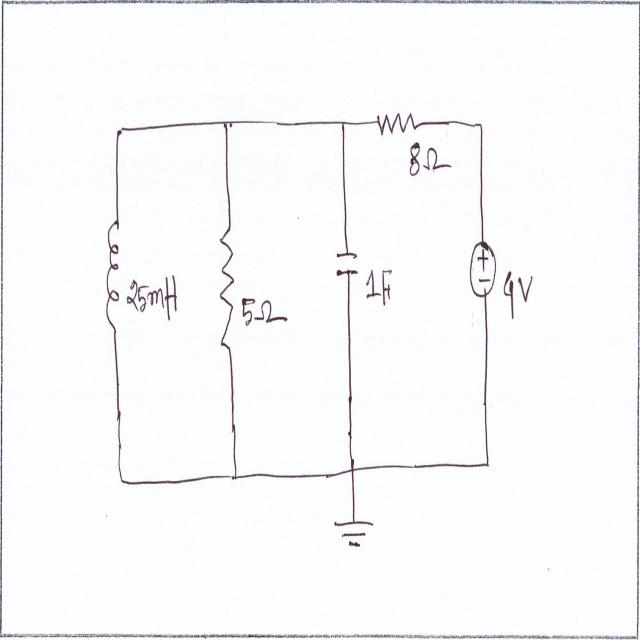 8Ω
+
−
25mH
5Ω
1F
9V